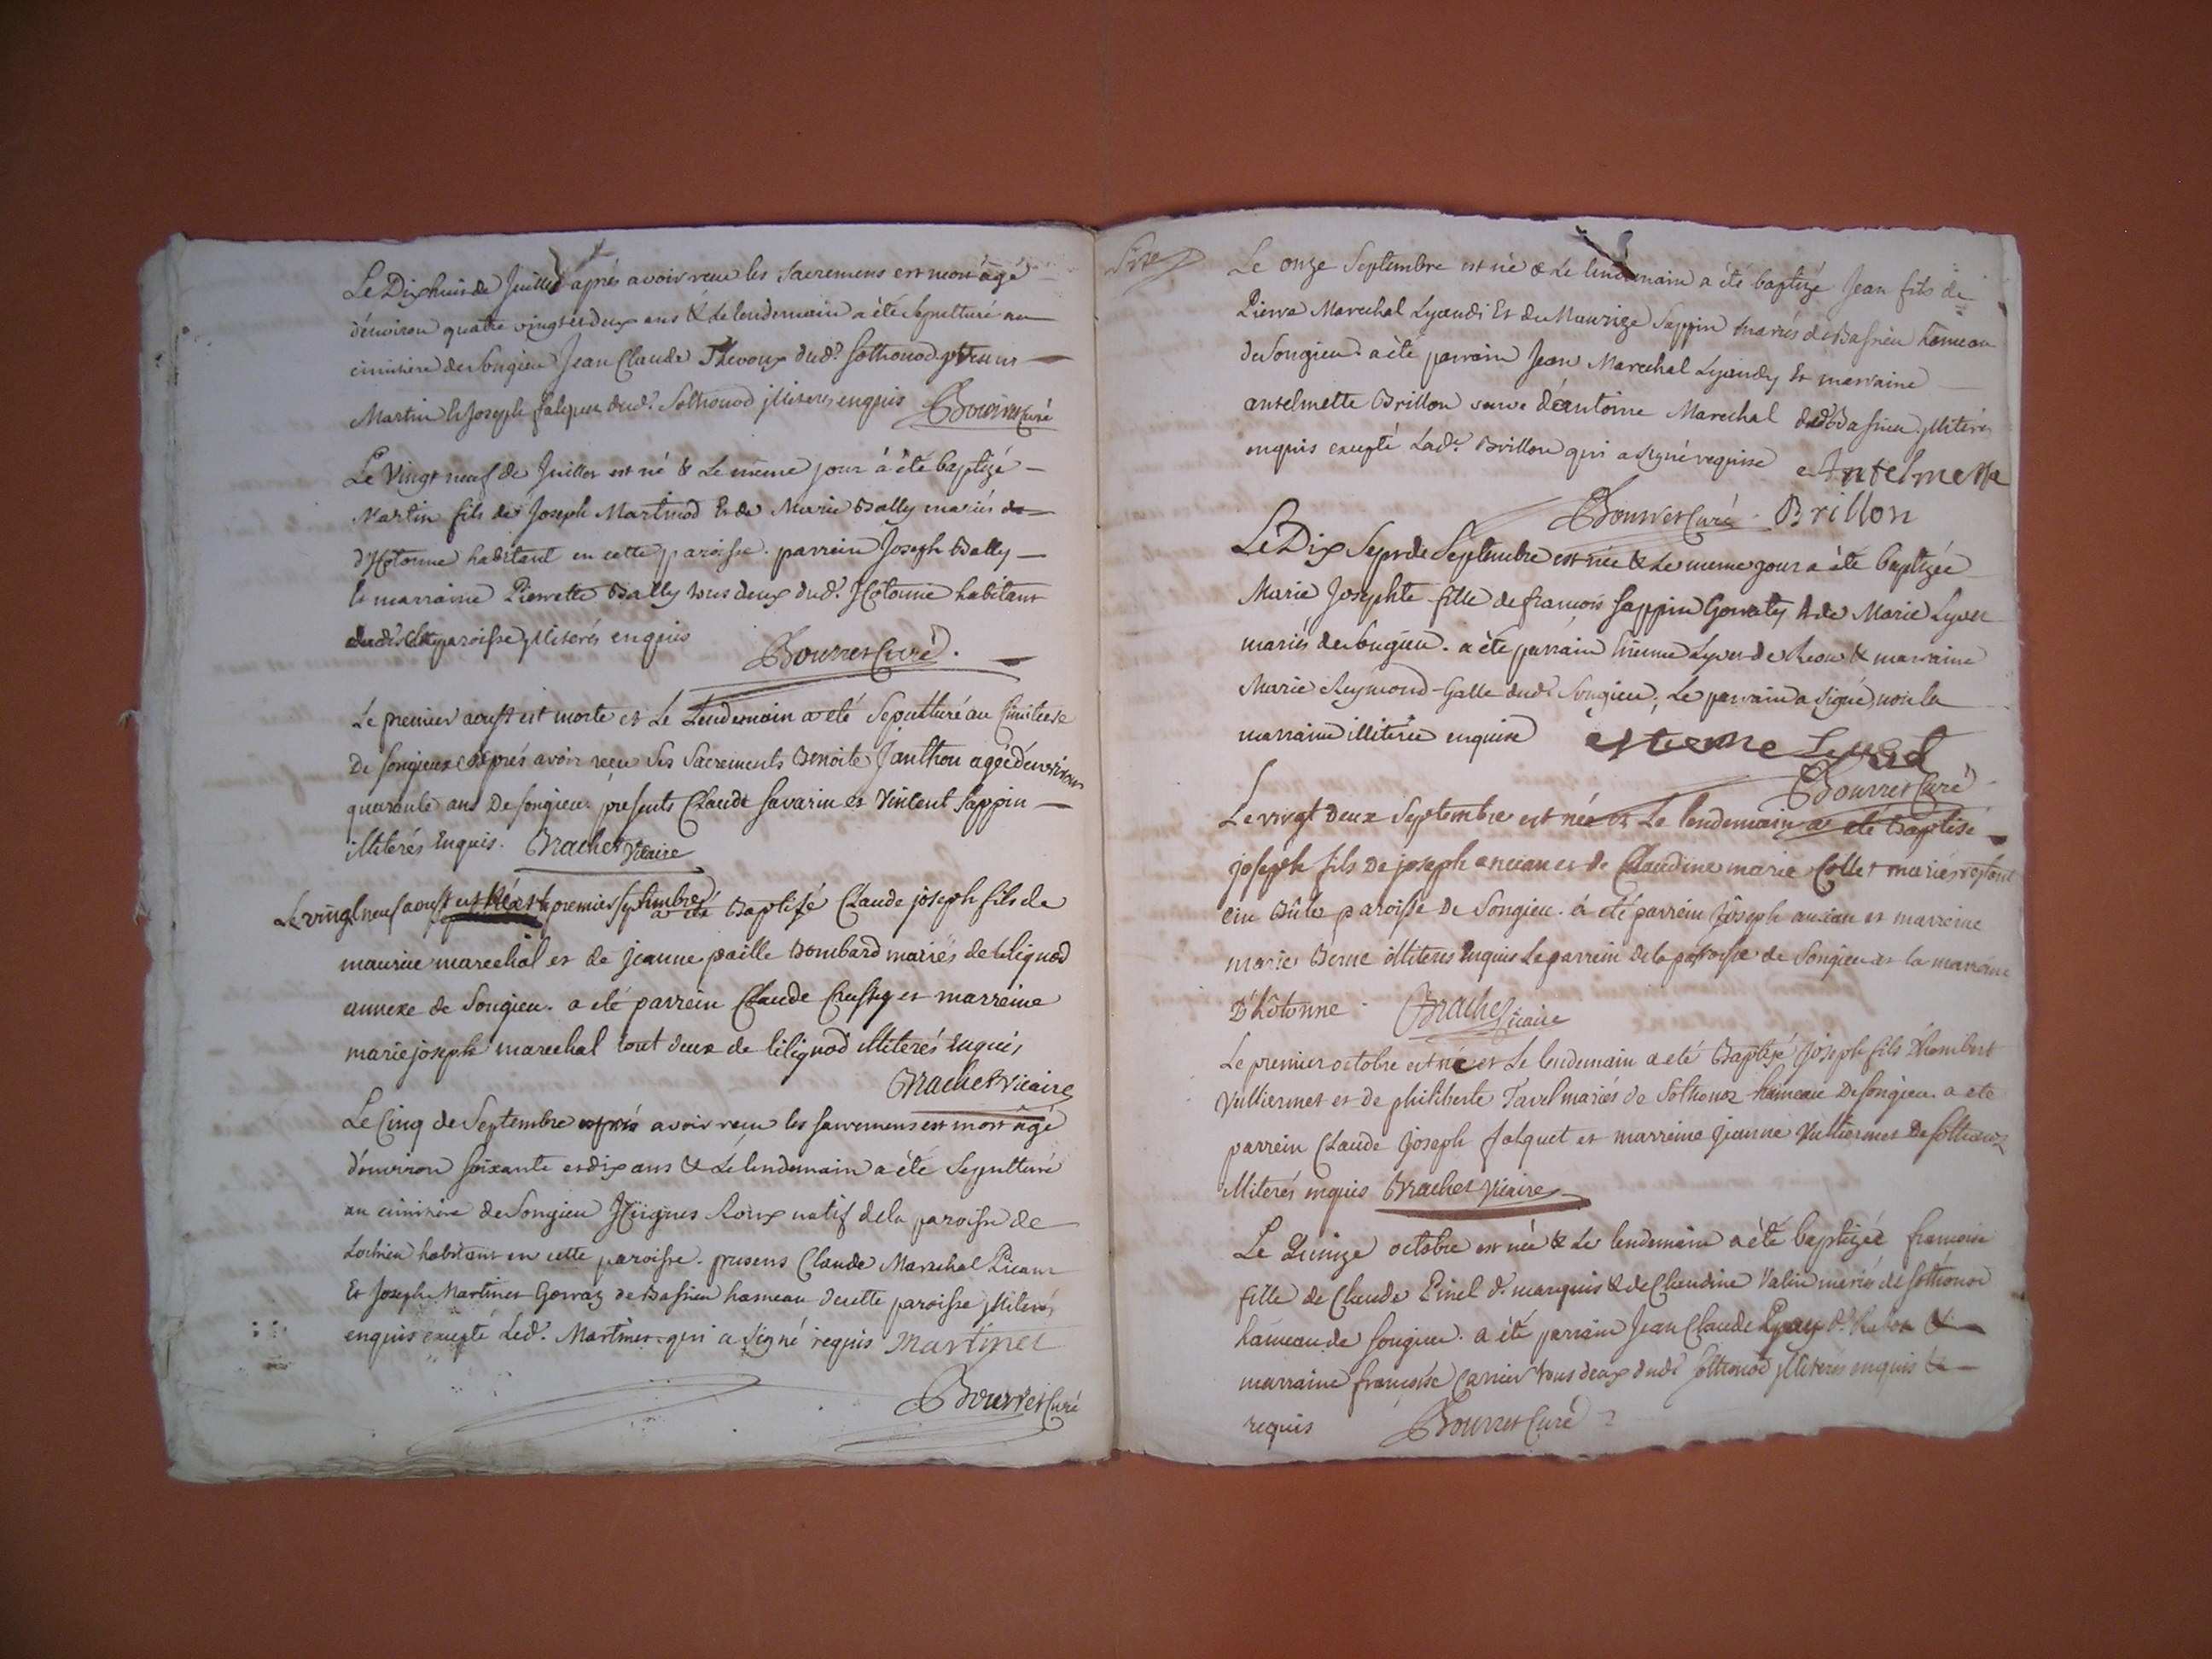 Le Dix huit de Juillet après avoir recu les Sacremens est mort âgé
d'environ quatre vingt et deux ans & Le lendemain a été sepulturé au
cimitiere de Songieu Jean Claude Thevoux dud.t Sothonod presens
Martin & Joseph falquet dud.t Sothonod illiterés enquis Bourret Curé
Le Vingt neuf de Juillet est né & Le même jour à été baptizé
Martin fils de Joseph Martinod Et de Marie Bally mariés de
d'Hotonne habitant en cette paroisse. parrein Joseph Bally
Et marraine Pierrette Bally tous deux dud.t Hotonne habitant
paroisse illiterés enquis Bourret Curé.
Le premier aoust est morte et Le Lendemain a eté Sepulturé au Cimitiere
De Songieux après avoir reçu Ses Sacrements Benoite Janthon agée d'environ
quarante ans De Songieu. presents Claude Savarin et Vincent Sappin
illiterés Enquis. Brachet Vicaire
Le vingt neuf aoust est né et le premier septembre a eté Baptisé Claude joseph fils de
maurice marechal et de jeanne paille Bombard mariés de lilignod
annexe de Songieu. a eté parrein Claude Crussy et marreine
marie joseph marechal tout deux de lilignod illiterés Enquis
Brachet Vicaire
Le Cinq de Septembre après avoir reçu les sacremens est mort âgé
d'environ soixante et dix ans & Le lendemain a été Sepulturé
au cimitiere de Songieu Hügues Roux natif de la paroisse de
Lochieu habitant en cette paroisse. presens Claude Marechal Picant
Et Joseph Martinet Gorraz de Bassieu hameau de cette paroisse illiterés
enquis excepté Led.t Martinet qui a signé requis Martinet
Bourret Curé
Le onze Septembre est né & Le lendemain a été baptizé Jean fils de
Pierre Marechal Lyaudi Et de Maurize Sappin mariés de Bassieu hameau
de Songieu. a été parrain Jean Marechal Lyaudy Et marraine
antelmette Brillon veuve d'antoine Marechal dud.t Bassieu illiterés
enquis excepté Lad.e Brillon qui a signé requise Antelmette
Bourret Curé. Brillon
Le Dix Sept de Septembre est née & Le meme jour a été baptizée
Marie Josephte fille de françois Sappin Gonraty & de Marie Lyvet
mariés de Songieu. a été parrain Etienne Lyvet de & marraine
Marie Reymond-Galle dud.t Songieu, Le parrain a signé, non la
marraine illiterée enquise estienne
Bourret Curé
Le vingt Deux Septembre est né et Le lendemain a eté Baptisé
joseph fils De joseph ancian et de Claudine marie Collet mariés restant
en paroisse De Songieu. à eté parrein joseph ancian et marreine
marie Berne illiteres Enquis Le parrein de la paroisse de Songieu et la marreine
D'hotonne. Brachet Vicaire
Le premier octobre est né et Le lendemain a eté Baptisé joseph fils D'hombert
Vulliermet et de philiberte Tavel mariés de Sothonoz hameau De Songieu. a ete
parrein Claude joseph falquet et marreine jeanne Vulliermet De Sothonoz
illiterés enquis Brachet Vicaire
Le Quinze octobre est née & Le lendemain a été baptizée françoise
fille de Claude Pinel d.t marquis & de Claudine Valin mariés de Sothonod
hameau de Songieu. a été parrain Jean Claude d.t &
marraine françoise Carrier tous deux dud.t Sothonod illiterés enquis &
requis Bourret Curé